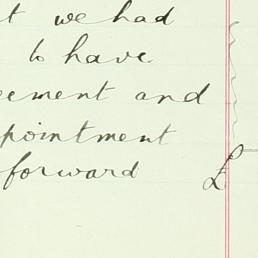 t we had
to have
eement and
pointment
forward
£